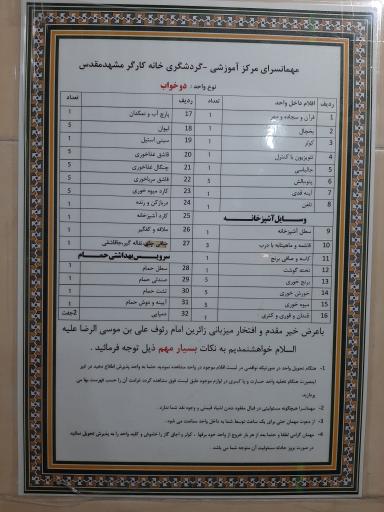 مهمانسرای مرکز آموزشی -گردشگری خانه کارگر مشهدمقدس
نوع واحد : دوخواب
ردیف اقلام داخل واحد تعداد ردیف تعداد
1 قرآن و سجاده و مهر 1 17 پارچ آب و نمکدان 1
2 یخچال 1 18 لیوان 5
3 کولر 1 19 سینی استیل 1
4 تلویزیون با کنترل 1 20 قاشق غذاخوری 5
5 جالباسی 1 21 چنگال غذاخوری 5
6 پتو،بالش 5 22 قاشق مرباخوری 5
7 آینه قدی 1 23 کارد میوه خوری 5
8 تلفن 1 24 دربازکن و رنده 1
وسایل آشپزخانه 25 کارد آشپزخانه 1
9 سطل آشپزخانه 1 26 ملاقه و کفگیر 1
10 قابلمه و ماهیتابه با درب 3 27
11 کاسه و صافی برنج 1 سرویس بهداشتی حمام
12 تخته گوشت 1 28 سطل حمام 1
13 برنج خوری 5 29 صندلی حمام 1
14 خورش خوری 5 30 تشت حمام 1
15 میوه خوری 5 31 آیینه و دوش حمام 1
16 قندان و قوری و کتری 1 32 دمپایی 2جفت
باعرض خیر مقدم و افتخار میزبانی زائرین امام رئوف علی بن موسی الرضا علیه
السلام خواهشمندیم به نکات بسیار مهم ذیل توجه فرمائید .
1- هنگام تحویل واحد در صورتیکه نواقصی در لیست اقلام موجود در واحد مشاهده نمودید حتما به واحد پذیرش اطلاع دهید در غیر
اینصورت هنگام تخلیه واحد خسارت و یا کسری در لوازم موجود طبق لیست فوق مشاهده گردد غرامت آن را حسب فهرست بها می
پردازید.
2- مهمانسرا هیچگونه مسئولیتی در قبال مفقود شدن اشیاء قیمتی و وجوه نقد شما ندارد.
3- از دعوت مهمان حتی برای یک ساعت توسط شما به داخل واحد ممانعت می شود.
4- مهمان گرامی لطفا و حتما بعد از هر بار خروج از واحد خود برقها ، کولر و اجاق گاز را خاموش و کلید واحد را به پذیرش تحویل نمائید
در صورت بروز حادثه مسئولیت آن متوجه شما می باشد.